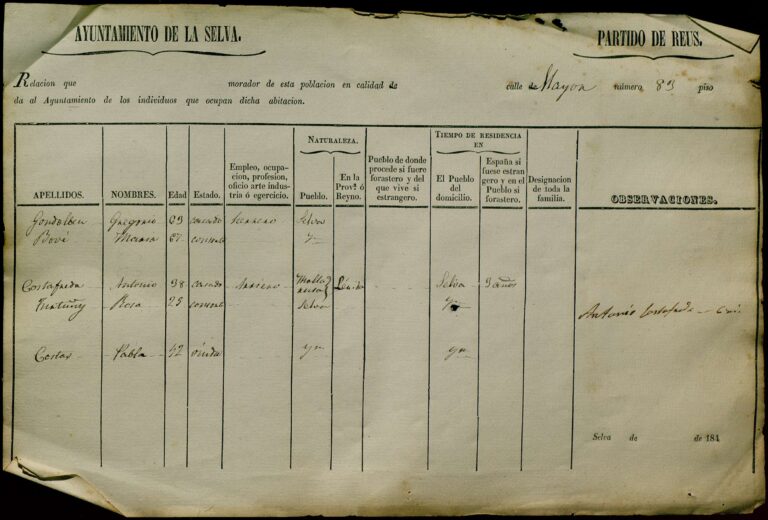 AYUNTAMIENTO DE LA SELVA.
PARTIDO DE REUS.
Relacion que morador de esta poblacion en calidad de calle de Mayor número 83 piso
da al Ayuntamiento de los individuos que ocupan dicha abitacion.
APELLIDOS.
NOMBRES.
Edad
Estado.
Empleo, ocupa-
cion, profesion,
oficio arte indus-
tria ó egercicio.
NATURALEZA.
Pueblo.
En la
Prov.ª ó
Reyno.
Pueblo de donde
procede si fuere
forastero y del
que vive si
estrangero.
TIEMPO DE RESIDENCIA
EN
El Pueblo
del
domicilio.
España si
fuese estran
gero y en el
Pueblo si
forastero.
Designacion
de toda la
familia.
OBSERVACIONES.
Gregorio 69 casado Selva
Bové
Costafreda Antonio 38 casado Lérida Selva 9 años
Rosa 25 Selva
Antonio Costafreda
Costas Pabla 42 viuda
Selva de de 184